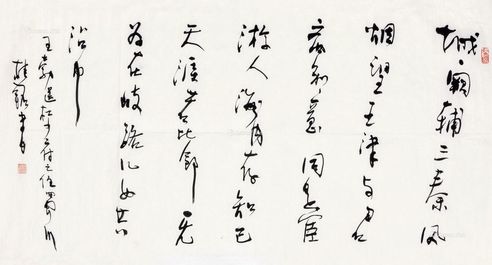 城闕輔三秦风
烟望五津与君
离别意同是宦
游人海内存知己
天涯若比邻无
为在歧路儿女共
沾巾
王勃送杜少府之任蜀州